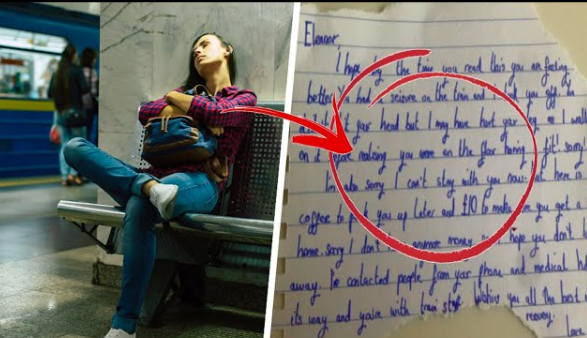 Eleanor
I hope by the time you read this you are feeling
better. You had a seizure on the train and I you off
your head but I may have hurt your leg as I
on it before realising you were on the floor having fit! sorry!
I'm also sorry I can't stay with you now but here is
coffee to pick you up later and £10 to make sure you get a
home. sorry I don't anymore money hope you don't
away. I've contacted people from your phone and medical
its way and you're with train staff Wishing you all the best
recovery.
Love